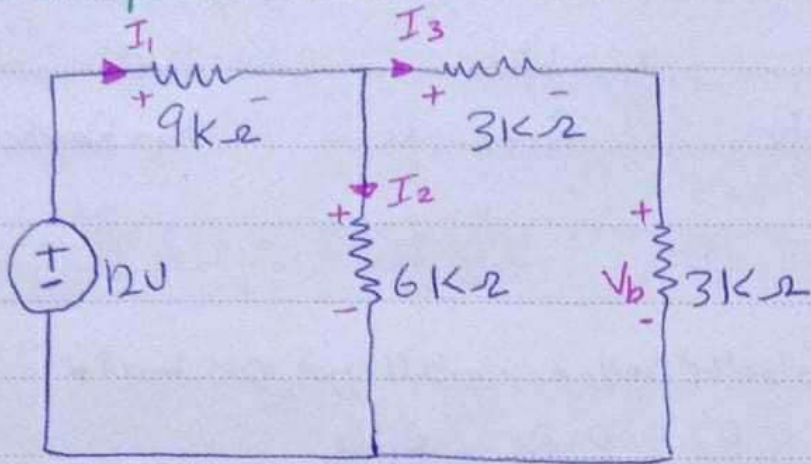 I1 I3
+ - + -
9KΩ 3KΩ
I2
+ +
+ - 12V 6KΩ Vb 3KΩ
- -